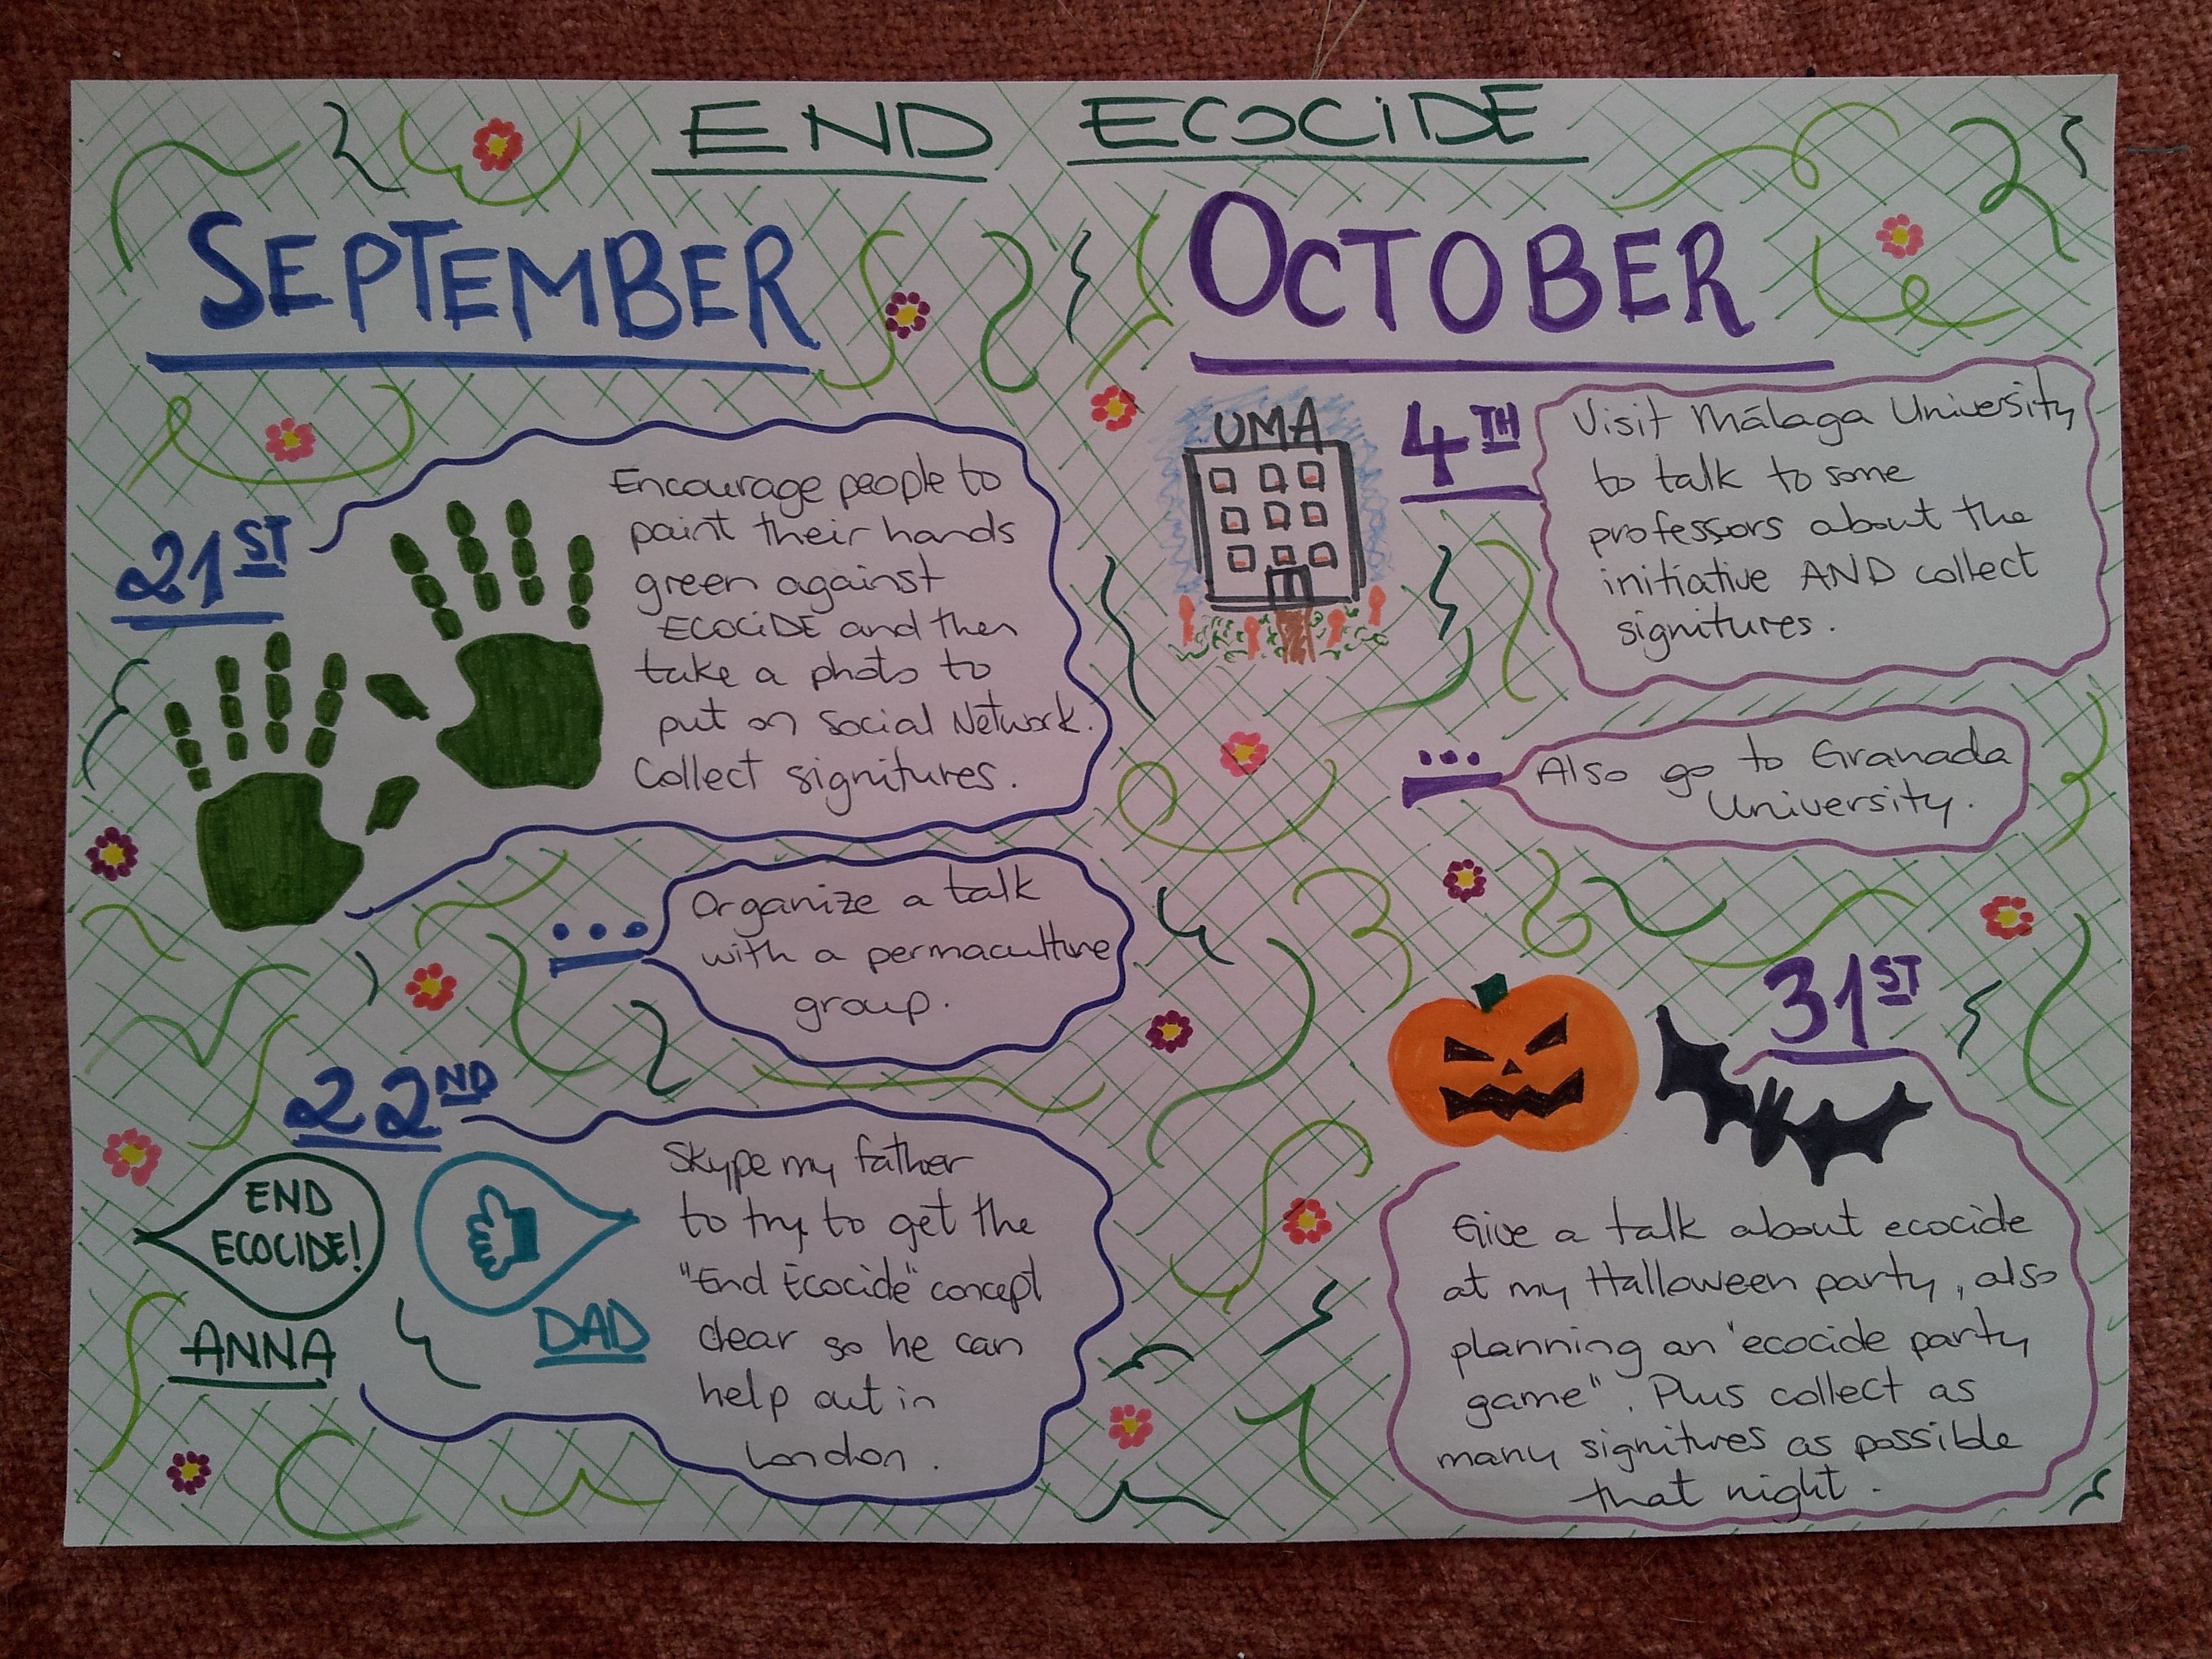 END ECOCIDE
SEPTEMBER
21ST
Encourage people to
paint their hands
green against
ECOCIDE and then
take a photo to
put on Social Network.
Collect signitures.
...
Organize a talk
with a permaculture
group.
22ND
END
ECOCIDE!
ANNA
DAD
Skype my father
to try to get the
"End Ecocide" concept
clear so he can
help out in
London.
OCTOBER
UMA
4TH
Visit Málaga University
to talk to some
professors about the
initiative AND collect
signitures.
...
Also go to Granada
University.
31ST
Give a talk about ecocide
at my Halloween party, also
planning an "ecocide party
game". Plus collect as
many signitures as possible
that night.